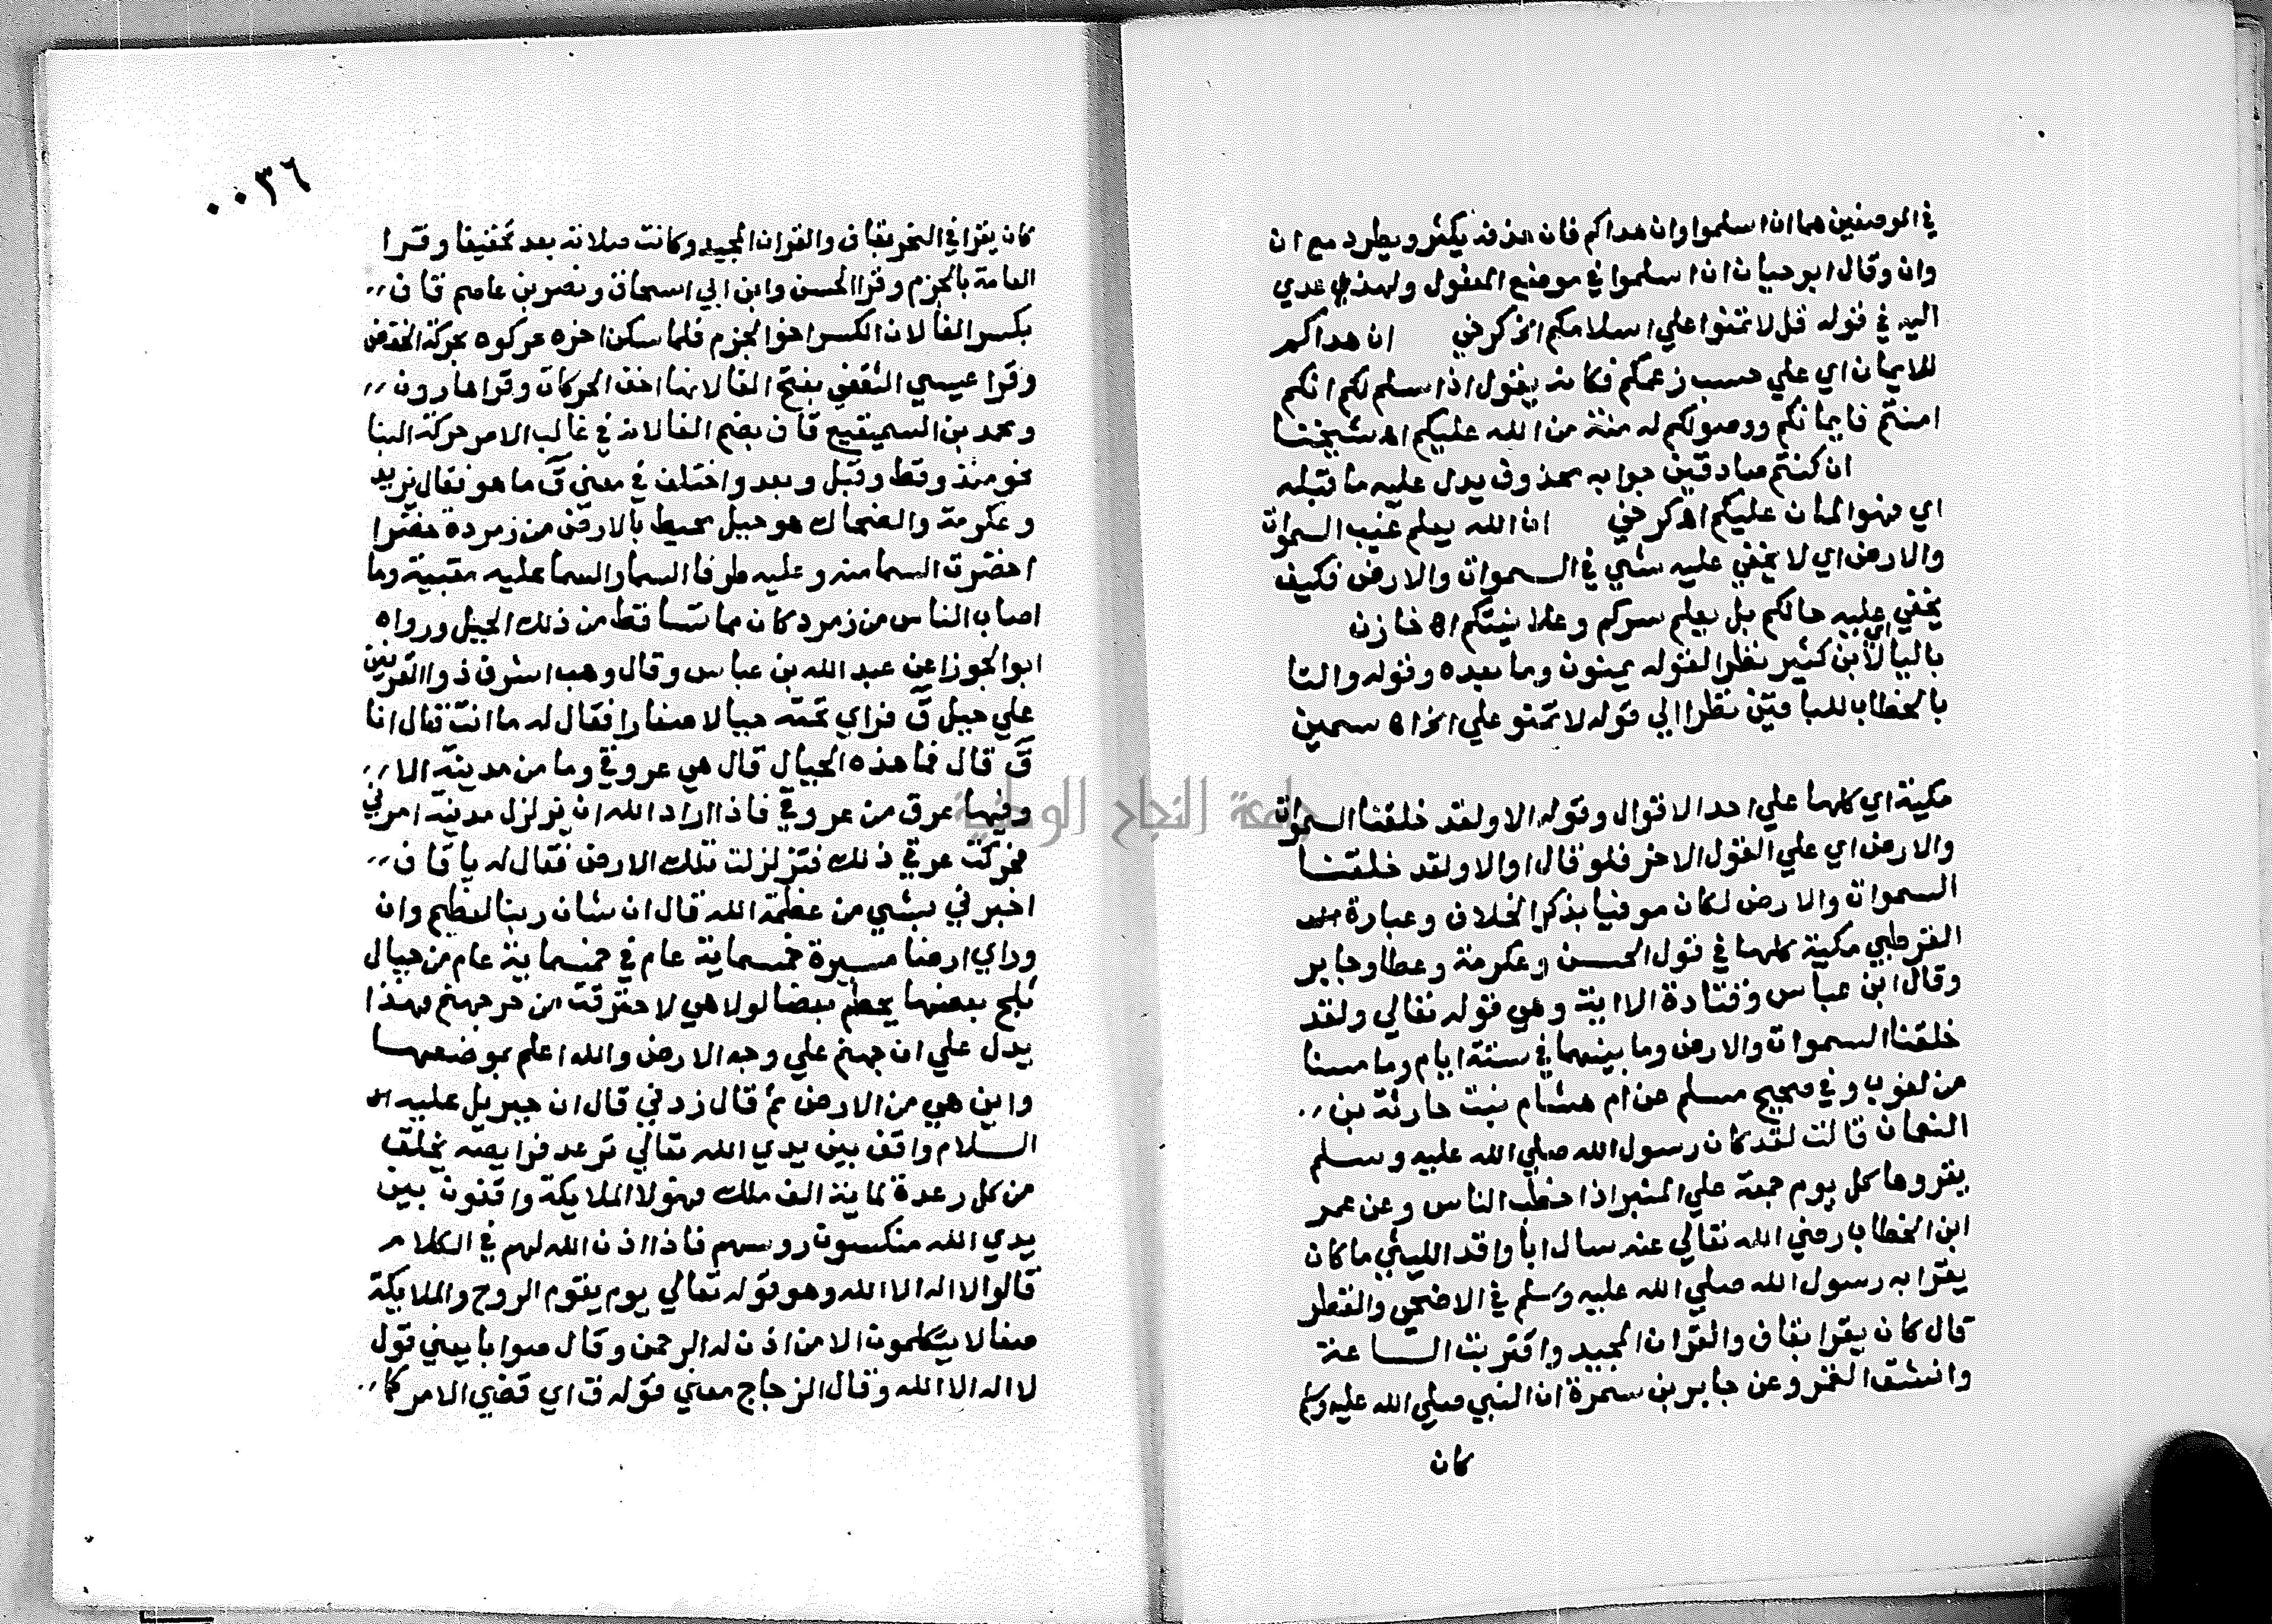 في الموضعين هما ان اسلموا وان هداكم فان حذفه يكثر ويطرد مع ان
وان وقال ابو حيان ان اسلموا في موضع المفعول ولهذا عدي
اليه في قوله قل لا تمنوا علي اسلامكم اه كرخي ان هداكم
للايمان اي علي حسب زعمكم فكانه يقول اذا سلم لكم انكم
امنتم فايمانكم ووصولكم له منة من الله عليكم اه شيخنا
ان كنتم صادقين جوابه محذوف يدل عليه ما قبله
اي فهو المان عليكم اه كرخي ان الله يعلم غيب السموات
والارض اي لا يخفي عليه شي في السموات والارض فكيف
يخفي عليه حالكم بل يعلم سركم وعلانيتكم اه خازن
باليا لابن كثير نظرا لقوله يمنون وما بعده وقوله والتا
بالخطاب للباقين نظرا الي قوله لا تمنو علي الخ اه سمين
مكية اي كلها علي احد الاقوال وقوله الا ولقد خلقنا السموات
والارض اي علي القول الاخر فلو قال او الا ولقد خلقنا
السموات والارض لكان موفيا بذكر الخلاف وعبارة
القرطبي مكية كلها في قول الحسن وعكرمة وعطا وجابر
وقال ابن عباس وقتادة الا اية وهي قوله تعالي ولقد
خلقنا السموات والارض وما بينهما في ستة ايام وما مسنا
من لغوب وفي صحيح مسلم عن ام هشام بنت حارثة بن
النعمان قالت لقد كان رسول الله صلي الله عليه وسلم
يقروها كل يوم جمعة علي المنبر اذا خطب الناس وعن عمر
ابن الخطاب رضي الله تعالي عنه سال ابا واقد الليثي ما كان
يقرا به رسول الله صلي الله عليه وسلم في الاضحي والفطر
قال كان يقرا بقاف والقران المجيد واقتربت الساعة
وانشق القمر وعن جابر بن سمرة ان النبي صلي الله عليه وسلم
كان
٠٠٣٦
كان يقرا في الفجر بقاف والقران المجيد وكانت صلاته بعد تخفيفا وقرا
العامة بالجزم وقرا الحسن وابن ابي اسحاق ونصر بن عاصم قاف
بكسر الفا لان الكسر اخو الجزم فلما سكن اخره حركوه بحركة الخفض
وقرا عيسي الثقفي بفتح الفا لانها اخف الحركات وقرا هارون
ومحمد بن السميقيع قاف بضم الفا لانه في غالب الامر حركة البنا
نحو منذ وقط وقبل وبعد واختلف في معني ق ما هو فقال يزيد
وعكرمة والضحاك هو جبل محيط بالارض من زمردة خضرا
اخضرت السما منه وعليه طرفا السما والسما عليه مقببة وما
اصاب الناس من زمرد كان مما تساقط من ذلك الجبل ورواه
ابو الجوزا عن عبد الله بن عباس وقال وهب اشرف ذوا القرنين
علي جبل ق فراي تحته جبالا صغارا فقال له ما انت قال انا
ق قال فما هذه الجبال قال هي عروقي وما من مدينة الا
وفيها عرق من عروقي فاذا اراد الله ان يزلزل مدينة امرني
فحركت عرقي ذلك فتزلزلت تلك الارض فقال له يا قاف
اخبرني بشي من عظمة الله قال ان شان ربنا لعظيم وان
وراي ارضا مسيرة خمسماية عام في خمسماية عام من جبال
ثلج بعضها يحطم بعضا لولا هي لاحترقت من حر جهنم فهذا
يدل علي ان جهنم علي وجه الارض والله اعلم بموضعها
واين هي من الارض ثم قال زدني قال ان جبريل عليه
السلام واقف بين يدي الله تعالي ترعد فرايصه يخلق
من كل رعدة لماية الف ملك فهولا الملايكة واقفون بين
يدي الله منكسون روسهم فاذا اذن الله لهم في الكلام
قالوا لا اله الا الله وهو قوله تعالي يوم يقوم الروح والملايكة
صفا لا يتكلمون الا من اذن له الرحمن وقال صوابا يعني قول
لا اله الا الله وقال الزجاج معني قوله ق اي قضي الامر كما
جامعة النجاح الوطنية